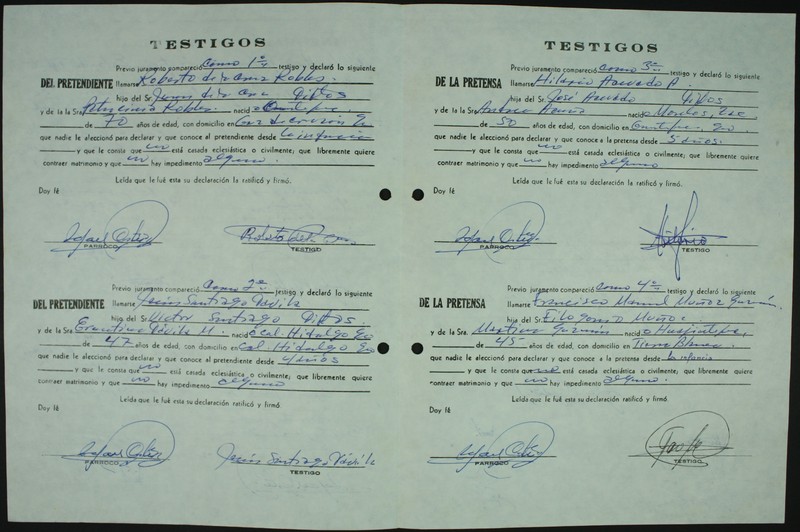 TESTIGOS
Previo juramento compareció Como 1er testigo y declaró lo siguiente
DEL PRETENDIENTE llamarse Roberto de la Cruz Robles.
hijo del Sr. de la Cruz
y de la Sra. Robles nació en
de 70 años de edad, con domicilio en
que nadie le aleccionó para declarar y que conoce al pretendiente desde la infancia
y que le consta que no está casada eclesiástica o civilmente; que libremente quiere
contraer matrimonio y que no hay impedimento alguno.
Leída que le fué esta su declaración la ratificó y firmó.
Doy fé
Rafael Ortiz
PARROCO
TESTIGO
Previo juramento compareció Como 2o testigo y declaró lo siguiente
DEL PRETENDIENTE llamarse Jesús Santiago Dávila
hijo del Sr. Victor Santiago
y de la Sra. Dávila M. Col. Hidalgo
de 47 años de edad, con domicilio en Col. Hidalgo
que nadie le aleccionó para declarar y que conoce al pretendiente desde 4 años
y que le consta que no está casada eclesiástica o civilmente; que libremente quiere
contraer matrimonio y que no hay impedimento alguno
Leída que le fué esta su declaración ratificó y firmó
Doy fé
Rafael Ortiz
PARROCO
Jesús Santiago Dávila
TESTIGO
TESTIGOS
Previo juramento compareció Como 3o testigo y declaró lo siguiente
DE LA PRETENSA llamarse Hilario Acevedo A.
hijo del Sr. José Acevedo
y de la Sra. nació Morelos, Zac.
de 50 años de edad, con domicilio en
que nadie le aleccionó para declarar y que conoce a la pretensa desde 5 años.
y que le consta que no está casada eclesiástica o civilmente; que libremente quiere
contraer matrimonio y que no hay impedimento alguno
Leída que le fué esta su declaración la ratificó y firmó.
Doy fé
Rafael Ortiz
PARROCO
TESTIGO
Previo juramento compareció Como 4o testigo y declaró lo siguiente
DE LA PRETENSA llamarse Francisco Manuel Muñoz Guzmán.
hijo del Sr. Muñoz
y de la Sra. Martina Guzmán nació
de 45 años de edad, con domicilio en Tierra Blanca
que nadie le aleccionó para declarar y que conoce a la pretensa desde la infancia
y que le consta que está casada eclesiástica o civilmente; que libremente quiere
contraer matrimonio y que no hay impedimento alguno.
Leída que le fué esta su declaración la ratificó y firmó.
Doy fé
Rafael Ortiz
PARROCO
TESTIGO